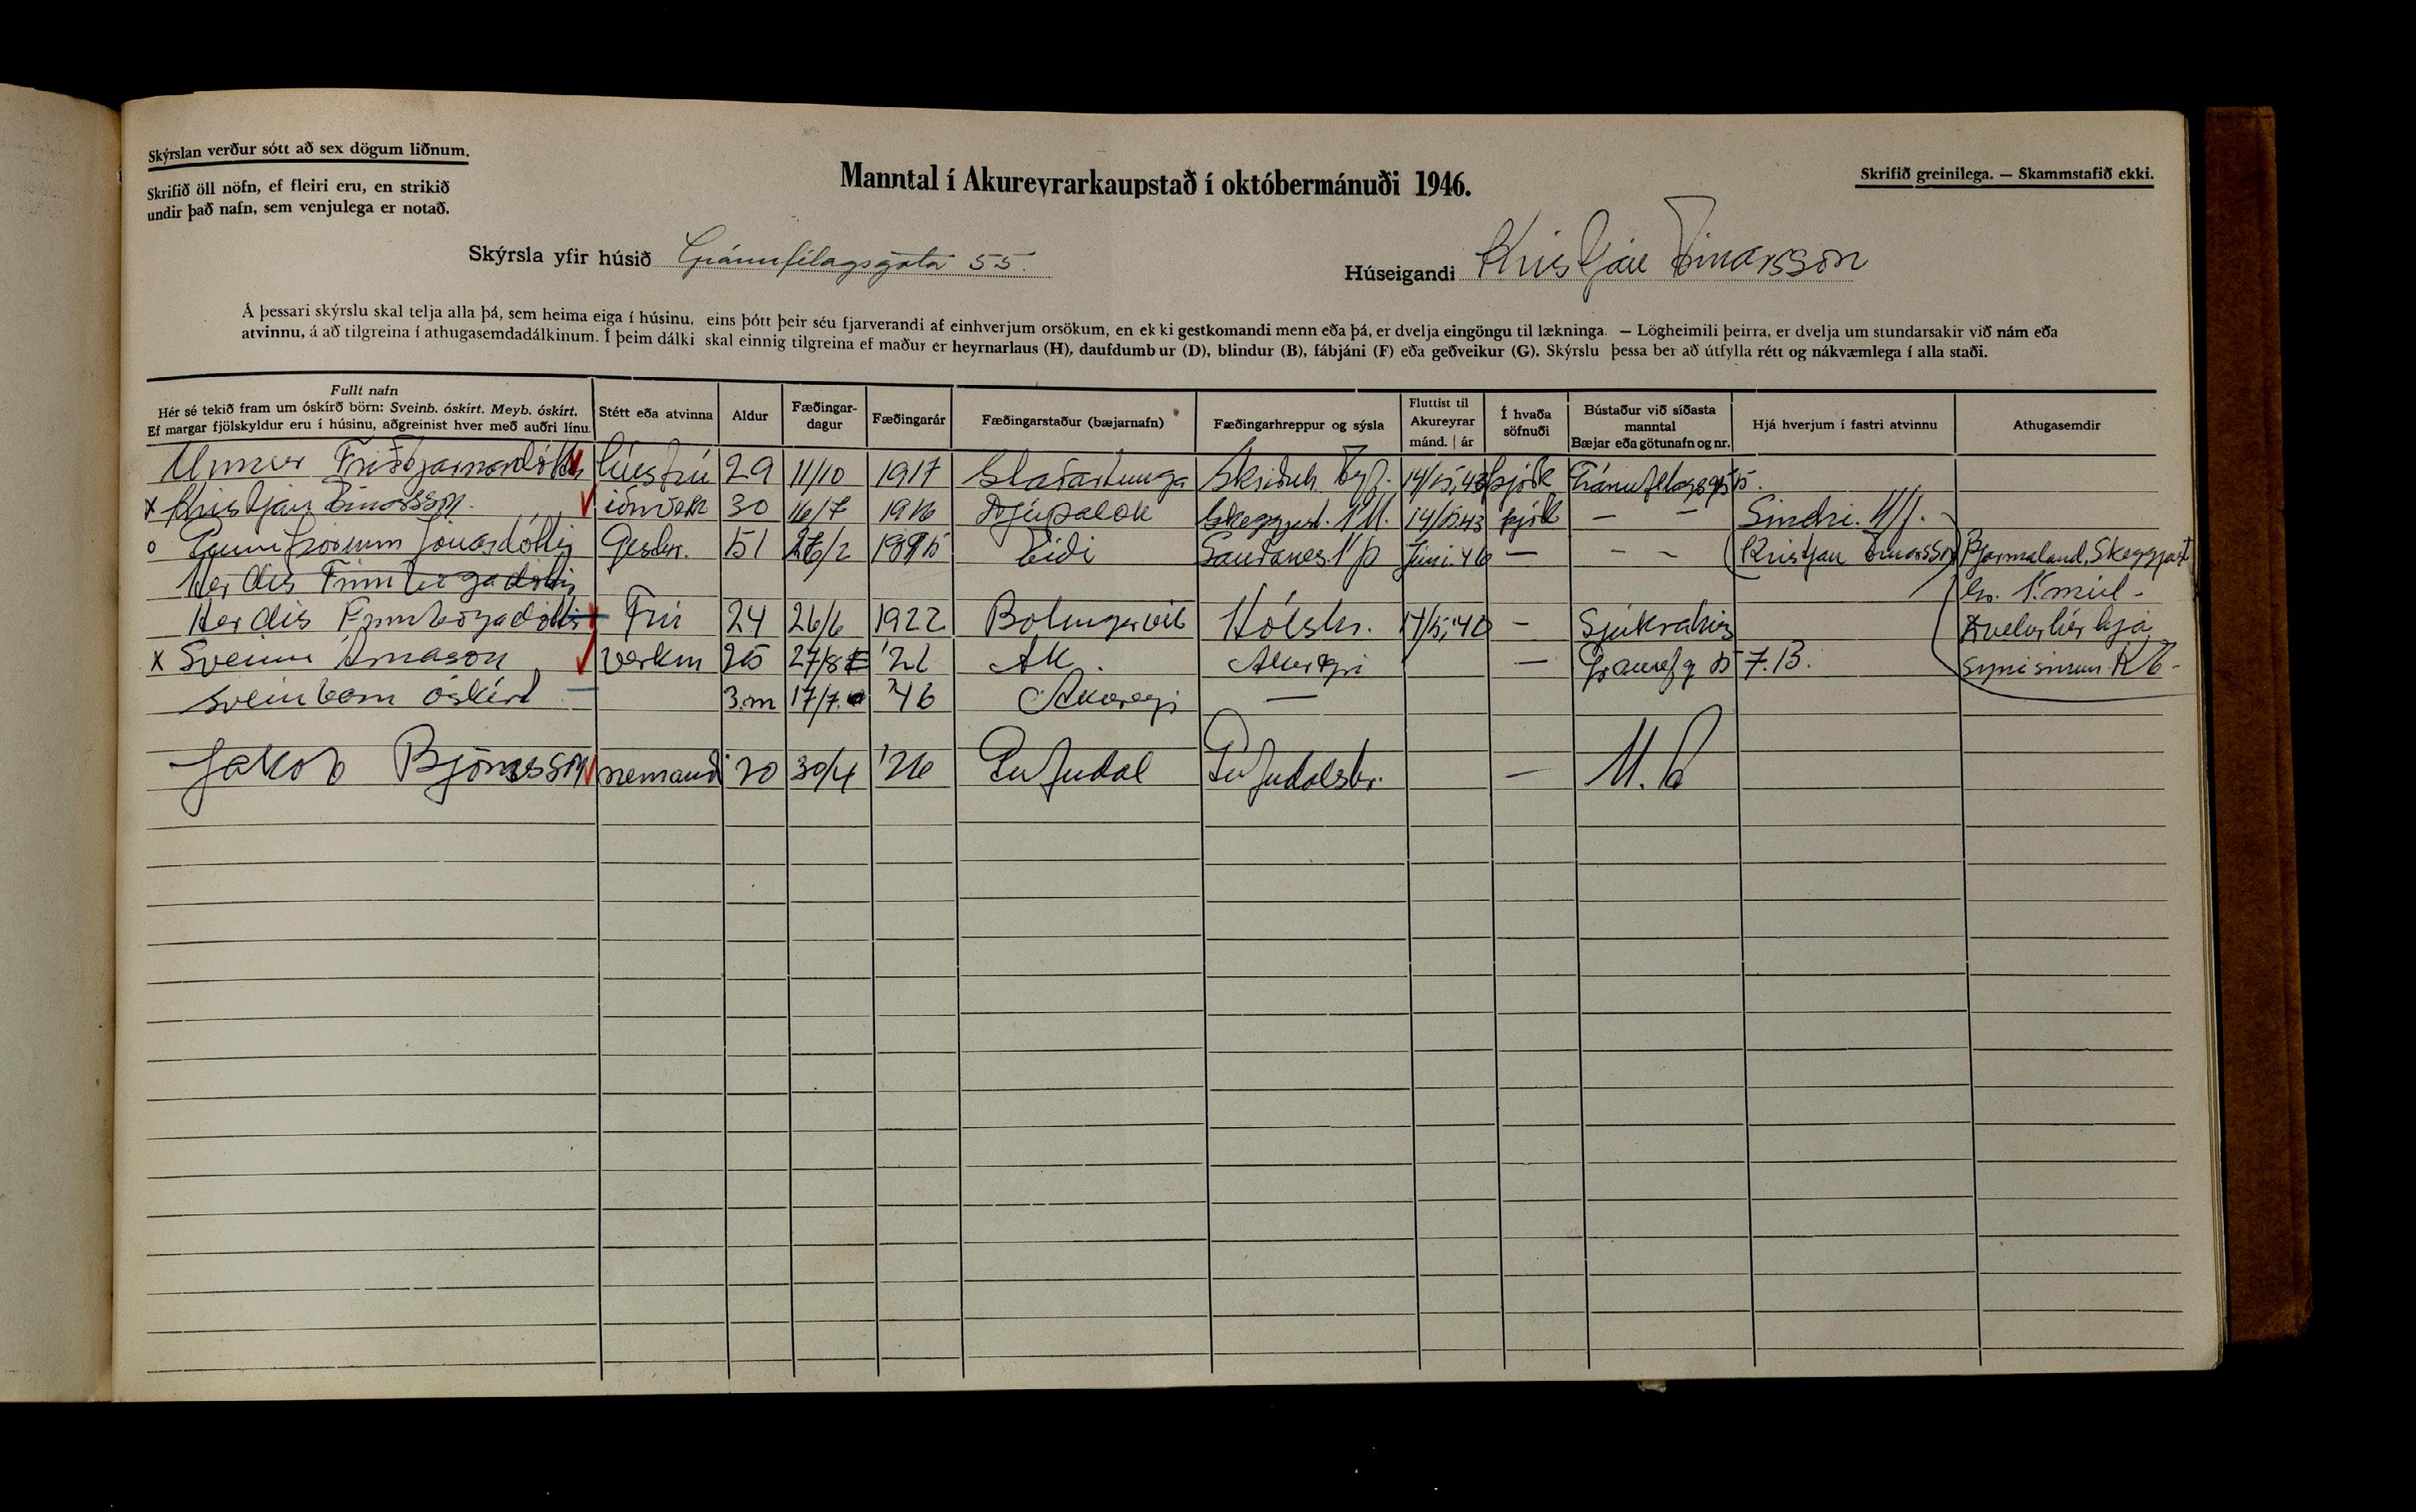 Skýrslan verður sótt að sex dögum liðnum.
Skrifið öll nöfn, ef fleiri eru, en strikið
undir það nafn, sem venjulega er notað.
Manntal í Akureyrarkaupstað í októbermánuði 1946.
Skrifið greinilega. — Skammstafið ekki.
Skýrsla yfir húsið Gránufélagsgata 55.
Húseigandi Kristján Einarsson
Á þessari skýrslu skal telja alla þá, sem heima eiga í húsinu, eins þótt þeir séu fjarverandi af einhverjum orsökum, en ekki gestkomandi menn eða þá, er dvelja eingöngu til lækninga. — Lögheimili þeirra, er dvelja um stundarsakir við nám eða
atvinnu, á að tilgreina í athugasemdadálkinum. Í þeim dálki skal einnig tilgreina ef maður er heyrnarlaus (H), daufdumbur (D), blindur (B), fábjáni (F) eða geðveikur (G). Skýrslu þessa ber að útfylla rétt og nákvæmlega í alla staði.
Fullt nafn
Hér sé tekið fram um óskírð börn: Sveinb. óskírt. Meyb. óskírt.
Ef margar fjölskyldur eru í húsinu, aðgreinist hver með auðri línu.
Stétt eða atvinna
Aldur
Fæðingar-
dagur
Fæðingarár
Fæðingarstaður (bæjarnafn)
Fæðingarhreppur og sýsla
Fluttist til
Akureyrar
mánd. | ár
Í hvaða
söfnuði
Bústaður við síðasta
manntal
Bæjar eða götunafn og nr.
Hjá hverjum í fastri atvinnu
Athugasemdir
Unnur Friðbjarnardóttir húsfrú 29 11/10 1917 Staðartunga Skriðuh. Eyf. 14/5,43 þjóðk Gránufélagsg 55.
x Kristján Einarsson. iðnverk 30 16/7 1916 Djúpalæk Skeggjast. N.M. 14/5.43 þjóðk — — Sindri. H/f.
o Gunnþórunn Jónasdóttir Gestur. 51 26/2 1895 Eiði Sauðanes. N.Þ Júní.46 — - - (Kristján Einarsson) Bjarmaland, Skeggjast
Herdís Finnbogadóttir hr. N. múl -
Herdís Finnbogadóttir Frú 24 26/6 1922 Bolungarvík Hólshr. 14/5,'40 — Sjúkrahús Dvelur hér hjá
x Sveinn Árnason verkm 25 27/8 '21 AK. Akureyri — Gránufg 55 7.B. syni sínum K E -
sveinbarn óskírt — 3.m 17/7. '46 Akureyri —
Jakob Björnsson nemandi 20 30/4 '26 Fnjudal Fnjudalshr. — M.A